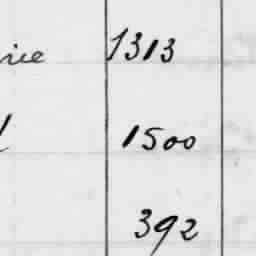 rie 1313
1500
392